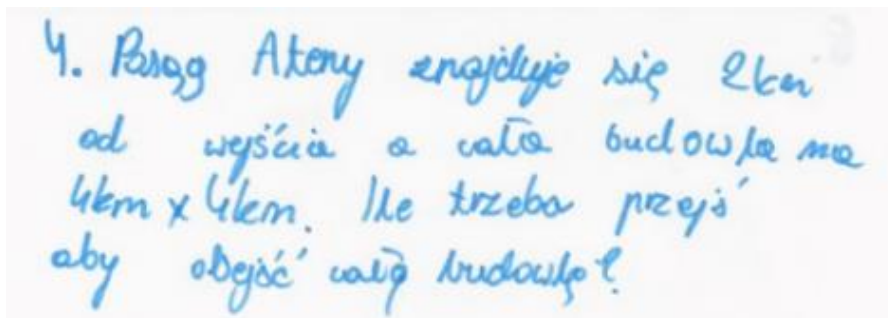 4. Posąg Ateny znajduje się 2km
od wejścia a cała budowla ma
4km x 4km. Ile trzeba przejś
aby obejść całą budowlę?